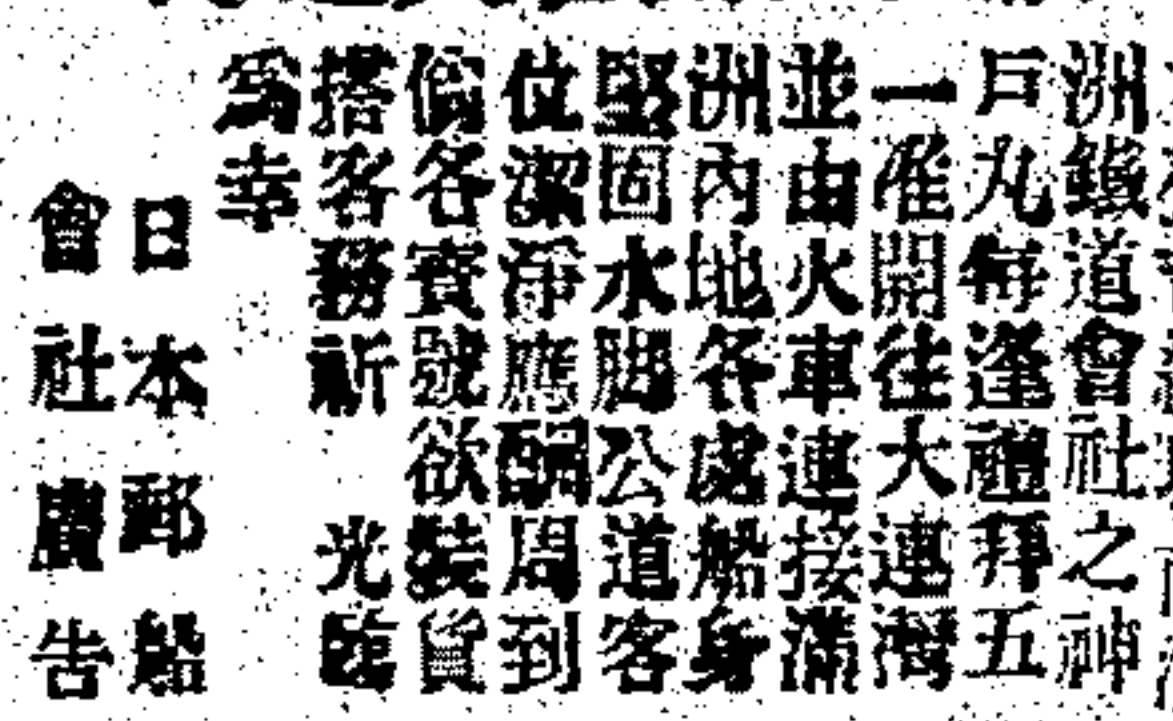 洲鐵道會社之神
戶丸每逢禮拜五
一准開往大連灣
並由火車連接滿
洲內地各處船身
堅固水脚公道客
位潔淨應酬周到
倘各寶號欲裝貨
搭客務祈 光臨
爲幸
日本郵船
會社廣告